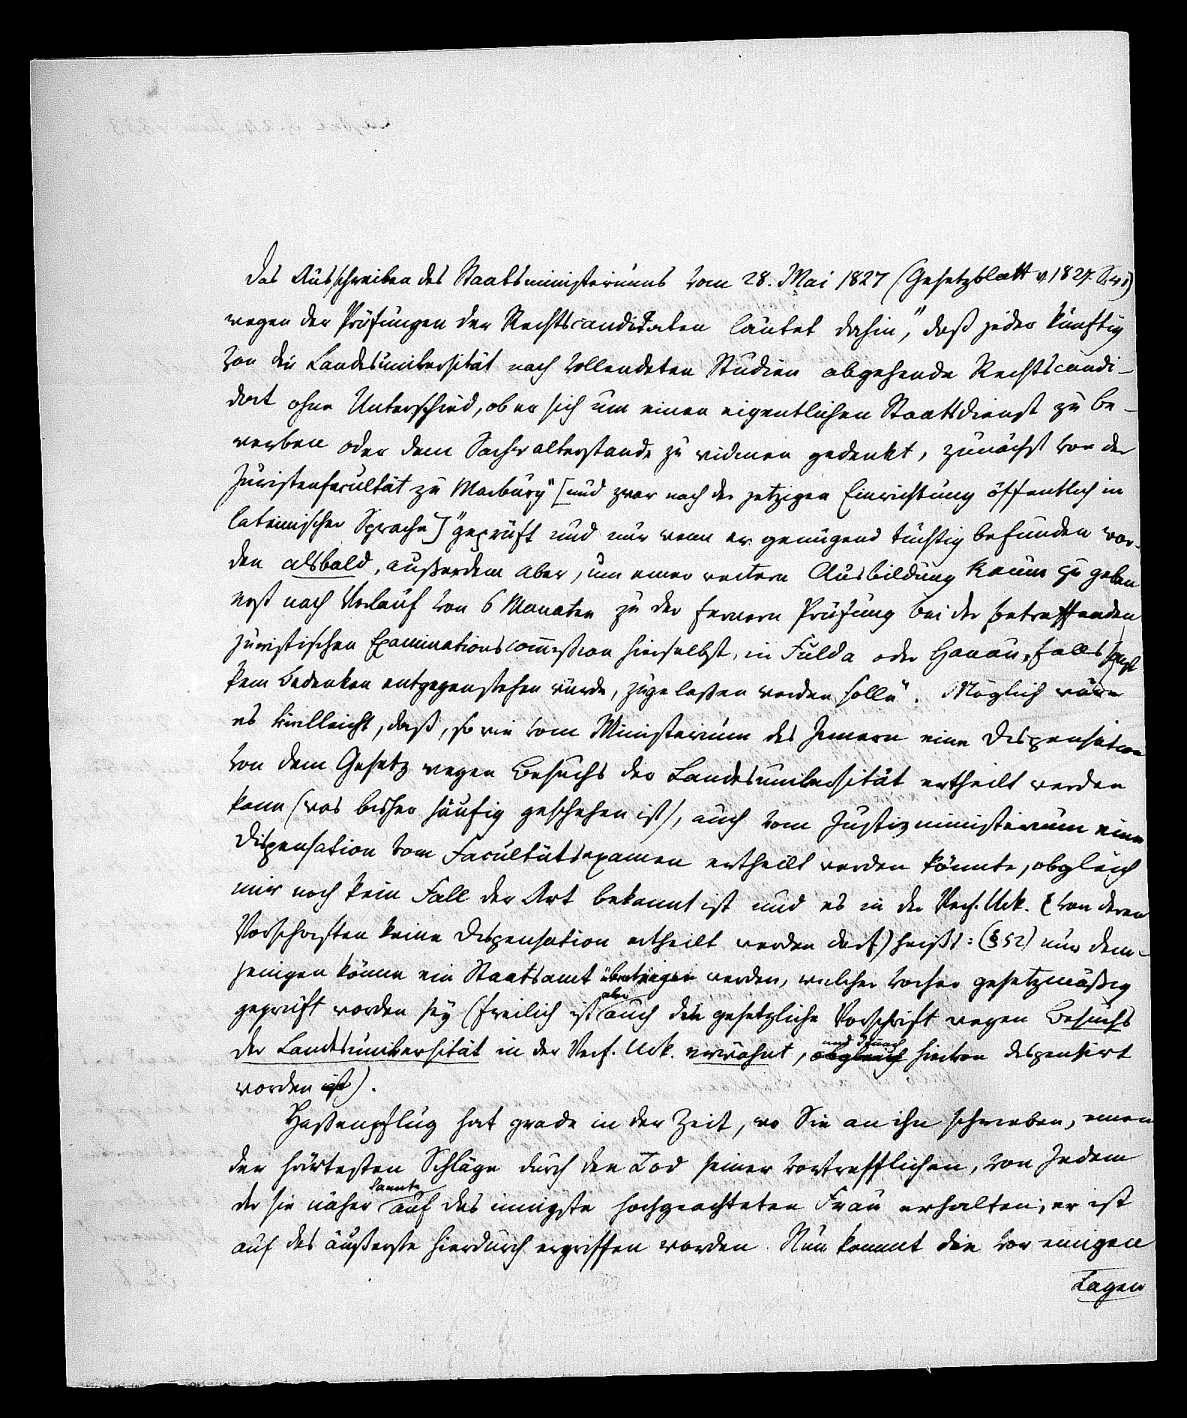 Das Ausschreiben des Staatsministeriums vom 28. Mai 1827 (Gesetzblatt v. 1827. S. 41)
wegen der Prüfungen der Rechtscandidaten lautet dahin, „daß jeder künftig
von der Landesuniversität nach vollendeten Studien abgehende Rechtscandi-
dat ohne Unterschied, ob er sich um einen eigentlichen Staatsdienst zu be-
werben oder dem Sachwalterstande zu widmen gedenkt, zunächst von der
Juristenfacultät zu Marburg" [und zwar nach der jetzigen Einrichtung öffentlich in
lateinischer Sprache] „geprüft und nur wenn er genügend tüchtig befunden wor-
den alsbald, außerdem aber, um einer weitern Ausbildung Raum zu geben
erst nach Verlauf von 6 Monaten zu der fernern Prüfung bei der betreffenden
juristischen Examinationscommission hierselbst, in Fulda oder Hanau, falls sonst
kein Bedenken entgegenstehen würde, zugelassen werden solle". Möglich wäre
es vielleicht, daß, so wie vom Ministerium des Innern eine Dispensation
von dem Gesetz wegen Besuchs der Landesuniversität ertheilt werden
kann (was bisher häufig geschehen ist), auch vom Justizministerium eine
Dispensation vom Facultätsexamen ertheilt werden könnte, obgleich
mir noch kein Fall der Art bekannt ist und es in der Verf. Urk. (von deren
Vorschriften keine Dispensation ertheilt werden darf) heißt: (§ 52) nur dem-
jenigen könne ein Staatsamt übertragen werden, welcher vorher gesetzmäßig
geprüft worden sey (freilich ist aber auch die gesetzliche Vorschrift wegen Besuchs
der Landesuniversität in der Verf. Urk. erwähnt, obgleich und danach hievon dispensirt
worden ist).
Hassenpflug hat grade in der Zeit, wo Sie an ihn schrieben, einen
der härtesten Schläge durch den Tod seiner vortrefflichen, von Jedem
der sie näher kannte auf das innigste hochgeachteten Frau erhalten; er ist
auf das äußerste hierdurch ergriffen worden. Nun kommt die vor einigen
Tagen